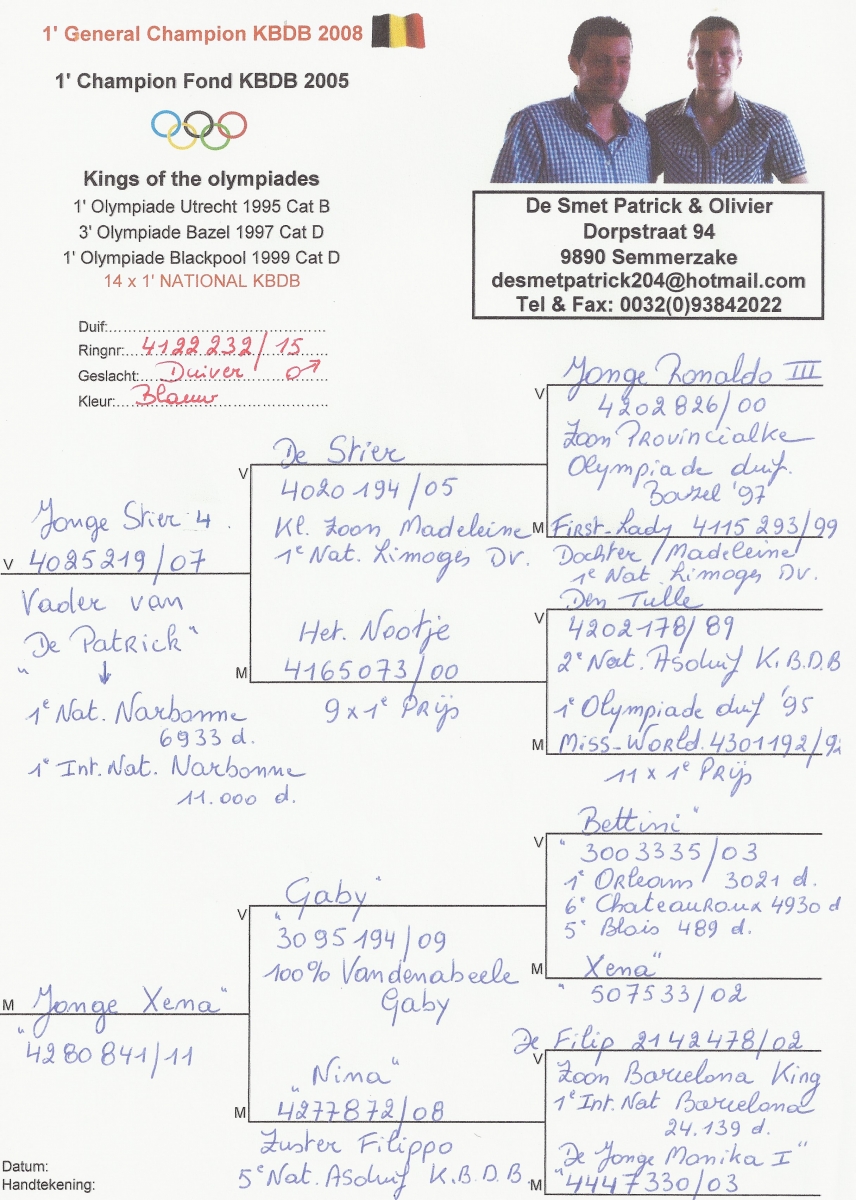 1' General Champion KBDB 2008
1' Champion Fond KBDB 2005
Kings of the olympiades
1' Olympiade Utrecht 1995 Cat B
3' Olympiade Bazel 1997 Cat D
1' Olympiade Blackpool 1999 Cat D
14 x 1' NATIONAL KBDB
De Smet Patrick & Olivier
Dorpstraat 94
9890 Semmerzake
desmetpatrick204@hotmail.com
Tel & Fax: 0032(0)93842022
Duif:
Ringnr: 4122232/15
Geslacht: Duiver ♂
Kleur: Blauw
Jonge Stier 4
V 4025219/07
Vader van
"De Patrick"
↓
1e Nat. Narbonne
6933 d.
1e Int. Nat. Narbonne
11.000 d.
De Stier
V
4020194/05
Kl. Zoon Madeleine
1e Nat. Limoges DV.
Het Nootje
M 4165073/00
9 x 1e Prijs
Jonge Ronaldo III
V
4202826/00
Zoon Provincialke
Olympiade duif.
Bazel '97
M First-Lady 4115293/99
Dochter Madeleine
1e Nat Limoges DV.
Den Tulle
V
4202178/89
2e Nat. Asduif K.B.D.B
1e Olympiade duif '95
M Miss-World. 4301192/92
11 x 1e Prijs
M "Jonge Xena"
4280841/11
"Gaby"
V
3095194/09
100% Vandenabeele
Gaby
"Nina"
M 4277872/08
Zuster Filippo
5e Nat. Asduif K.B.D.B
"Bettini"
V
3003335/03
1e Orleans 3021 d.
6e Chateauroux 4930 d
5e Blois 489 d.
M "Xena"
507533/02
De Filip 2142478/02
V
Zoon Barcelona King
1e Int. Nat Barcelona
24.139 d.
"De Jonge Monika I"
M 4447330/03
Datum:
Handtekening: